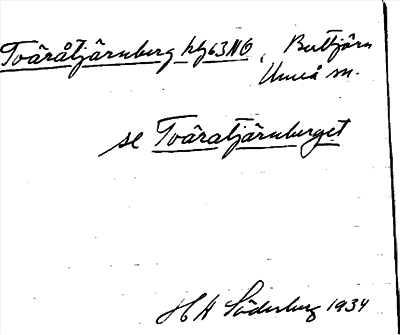 Tväråtjärnberg hbl63NO, Buttjärn
Umeå sn.
se Tväratjärnberget
H A Söderberg 1934